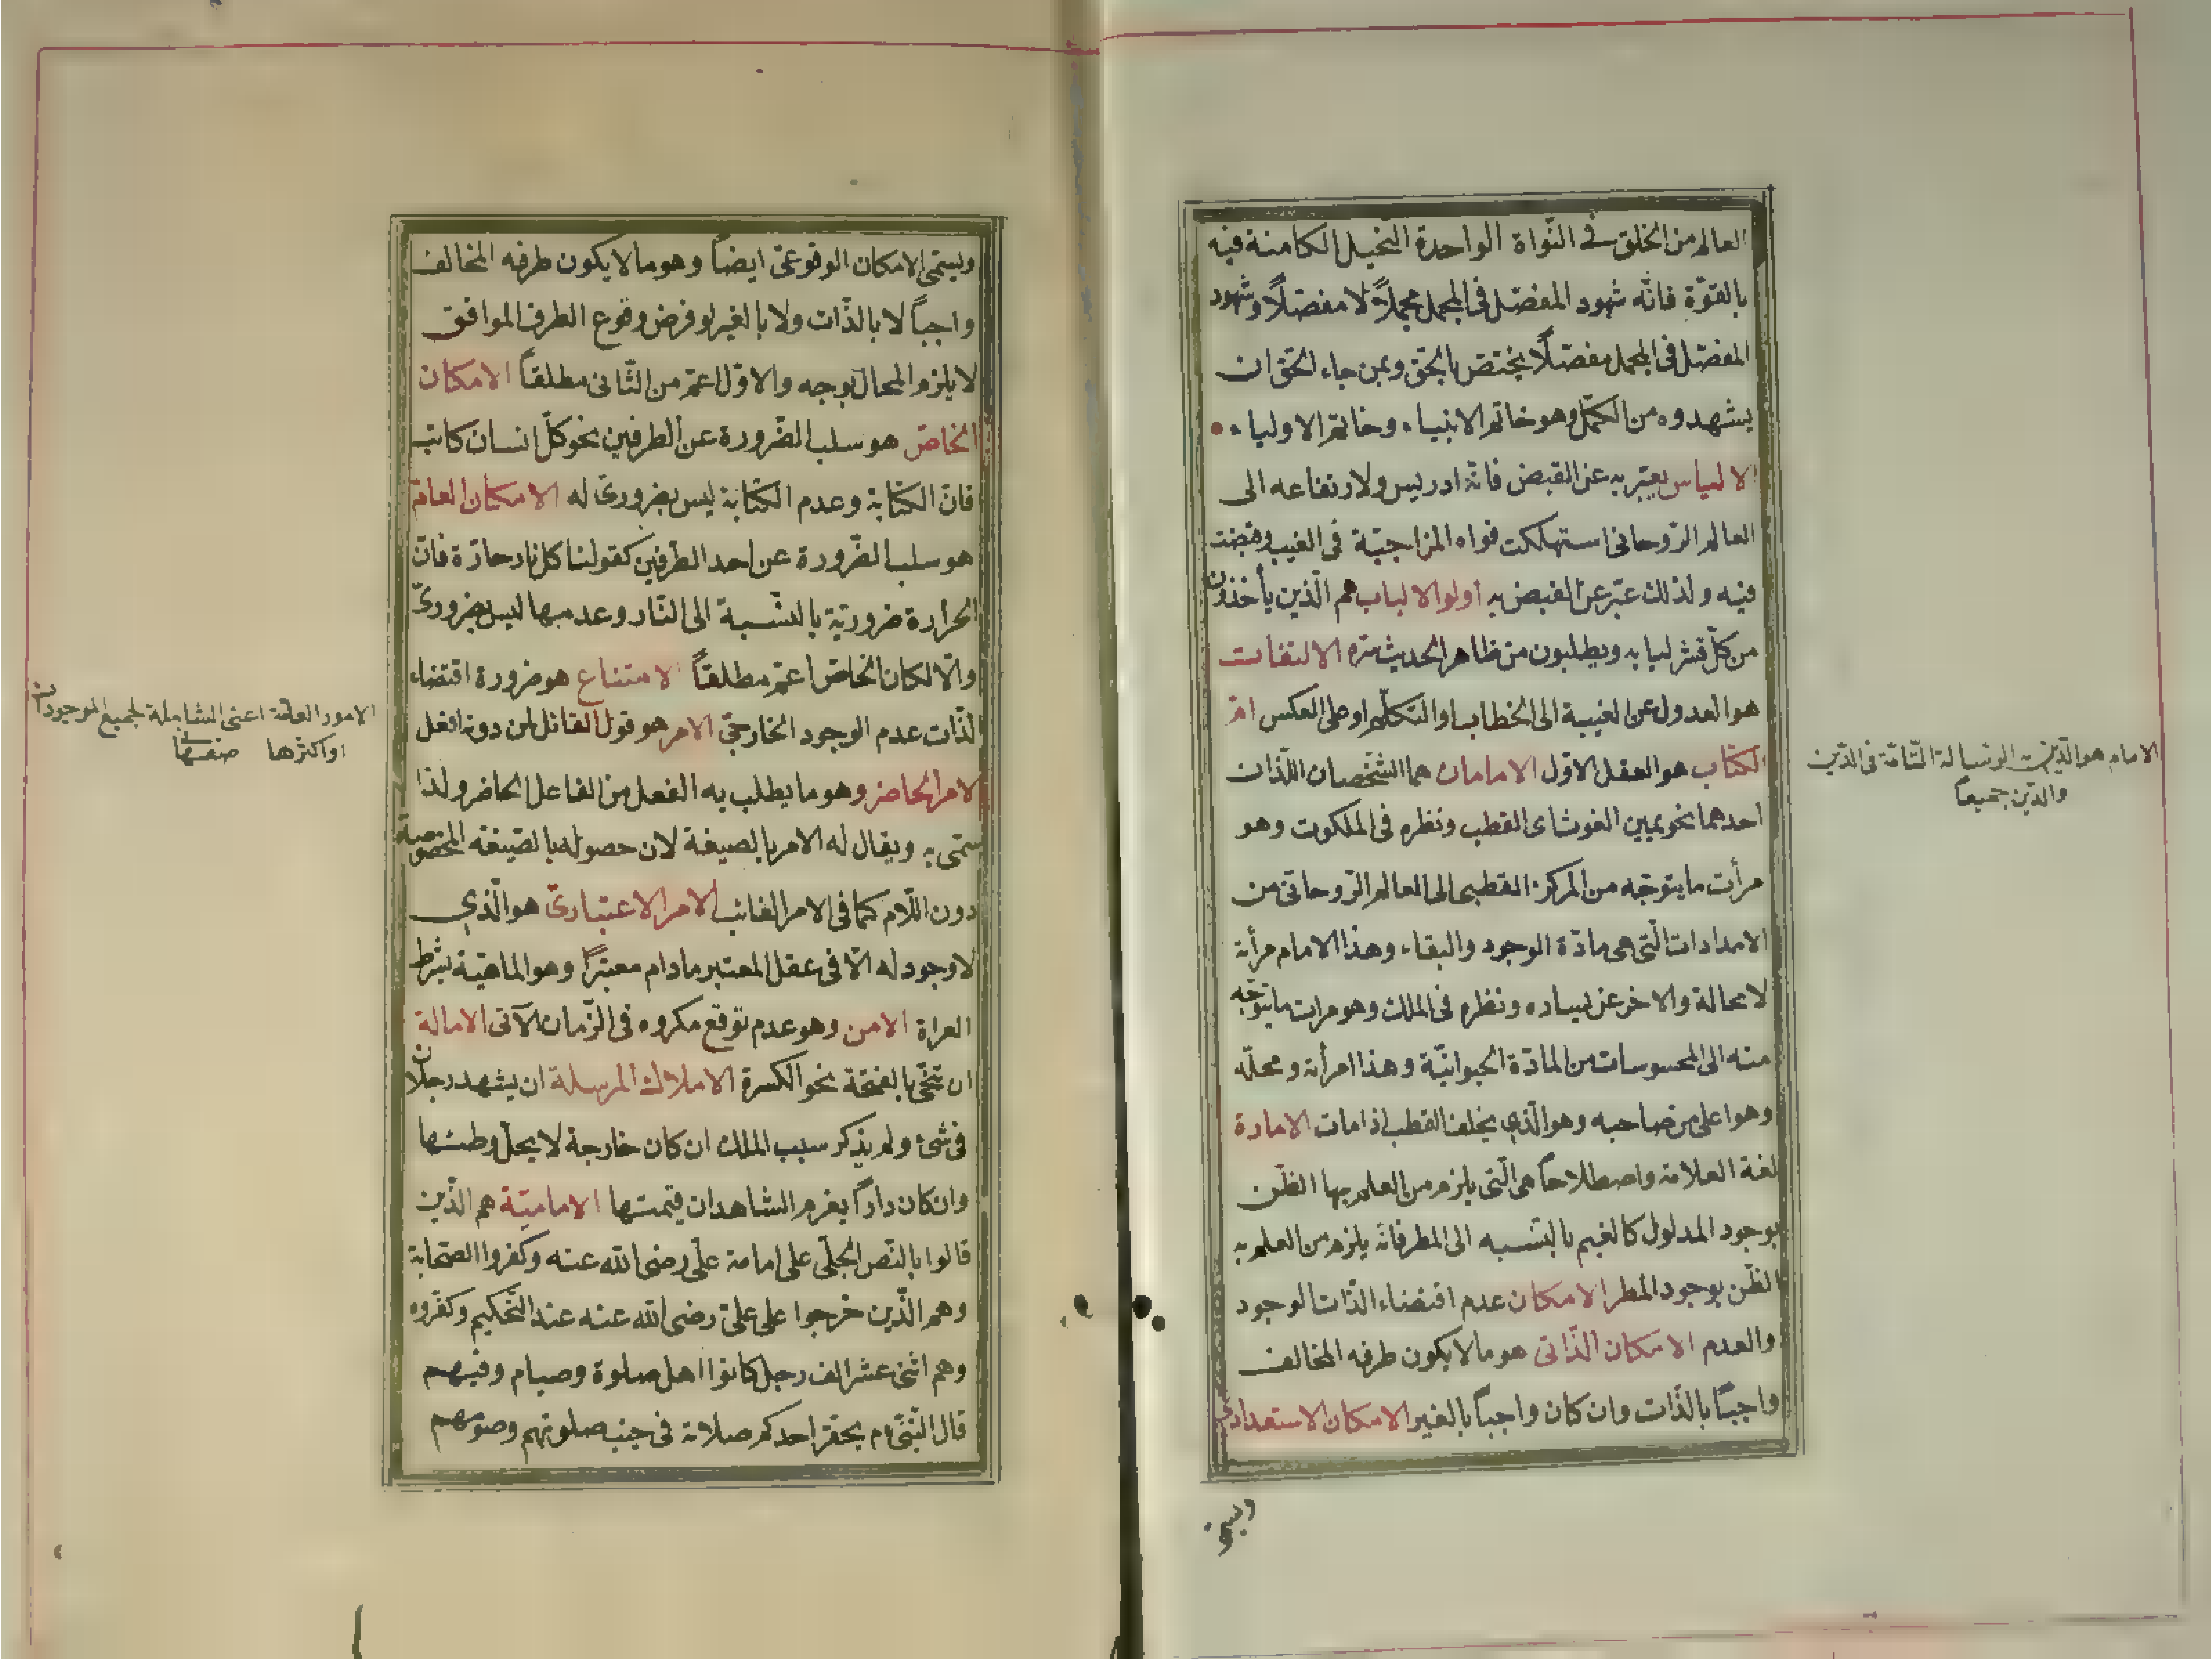 العالم من الخلق في النّواة الواحدة النخيل الكامنة فيه
بالقوّة فانّه شهود المفصّل في المجمل مجملاً لا مفصّلاً وشهود
المفصّل في المجمل مفصّلاً يختصّ بالحقّ وبمن جاء الحقّ ان
يشهدوه من الكمّل وهو خاتم الانبياء وخاتم الاولياء
الالياس يعبّر به عن القبض فانّه ادريس ولارتفاعه الى
العالم الرّوحانى استهلكت قواه المزاجيّة فى الغيب وقبضت
فيه ولذلك عبّر عن القبض به اولوا الالباب هم الّذين يأخذون
من كلّ قشر لبابه ويطلبون من ظاهر الحديث سرّه الالتفات
هو العدول عن الغيبة الى الخطاب او التكلّم او على العكس امّ
الكتاب هو العقل الاوّل الامامان هما الشّخصان اللّذان
احدهما نحو يمين الغوث اى القطب ونظره فى الملكوت وهو
مرأت ما يتوجّه من المركز القطبى الى العالم الرّوحانى من
الامدادات الّتى هى مادّة الوجود والبقاء وهذا الامام مرأته
لا محالة والاخر عن يساره ونظره فى الملك وهو مرات ما يتوجّه
منه الى المحسوسات من المادّة الحيوانيّة وهذا مرأته ومحلّه
وهو اعلى من صاحبه وهو الّذى يخلف القطب اذا مات الامارة
لغة العلامة واصطلاحاً هى الّتى يلزم من العلم بها الظّن
بوجود المدلول كالغيم بالنّسبه الى المطر فانّه يلزم من العلم به
الظّن بوجود المطر الامكان عدم اقتضاء الذّات الوجود
والعدم الامكان الذّاتى هو ما لا يكون طرفه المخالف
واجباً بالذّات وان كان واجباً بالغير الامكان الاستعدادى
ويسمّى
الامام هو الّذى له الرّئاسة التّامّة فى الدّين
والدّين جميعاً
ويسمّى الامكان الوقوعىّ ايضاً وهو ما لا يكون طرفه المخالف
واجباً لا بالذّات ولا بالغير لو فرض وقوع الطرف الموافق
لا يلزم المحال بوجه والاوّل اعمّ من الثّانى مطلقاً الامكان
الخاصّ هو سلب الضّرورة عن الطرفين نحو كلّ انسان كاتب
فانّ الكتابة وعدم الكتابة ليس بضرورىّ له الامكان العامّ
هو سلب الضّرورة عن احد الطرفين كقولنا كل نار حارّة فانّ
الحرارة ضروريّة بالنّسبة الى النّار وعدمها ليس بضرورىّ
والّا لكان الخاصّ اعمّ مطلقاً الامتناع هو ضرورة اقتضاء
الذّات عدم الوجود الخارجىّ الامر هو قول القائل لمن دونه افعل
الامر الحاضر وهو ما يطلب به الفعل من الفاعل الحاضر ولذا
سمّى به ويقال له الامر بالصيغة لان حصوله بالصّيغة المخصوصة
دون اللّام كما فى الامر الغائب الامر الاعتبارىّ هو الّذى
لا وجود له الّا فى عقل المعتبر ما دام معتبراً وهو الماهيّة بشرط
العراة الامن وهو عدم توقّع مكروه فى الزّمان الآتى الامالة
ان تنحى بالفتحة نحو الكسرة الاملاك المرسلة ان يشهد رجلان
فى شئ ولم يذكر سبب الملك ان كان جارية لا يحل وطئها
وان كان داراً يغرم الشاهدان قيمتها الاماميّة هم الّذين
قالوا بالنّص الجلّى على امامة علّى رضى الله عنه وكفروا الصّحابة
وهم الّذين خرجوا على علىّ رضى الله عنه عند التّحكيم وكفّروه
وهم اثنى عشر الف رجل كانوا اهل صلوة وصيام وفيهم
قال النّبىّ م يحقر احدكم صلاته فى جنب صلوتهم وصومهم
الامور العامّة اعنى الشاملة لجميع الموجودات
او اكثرها